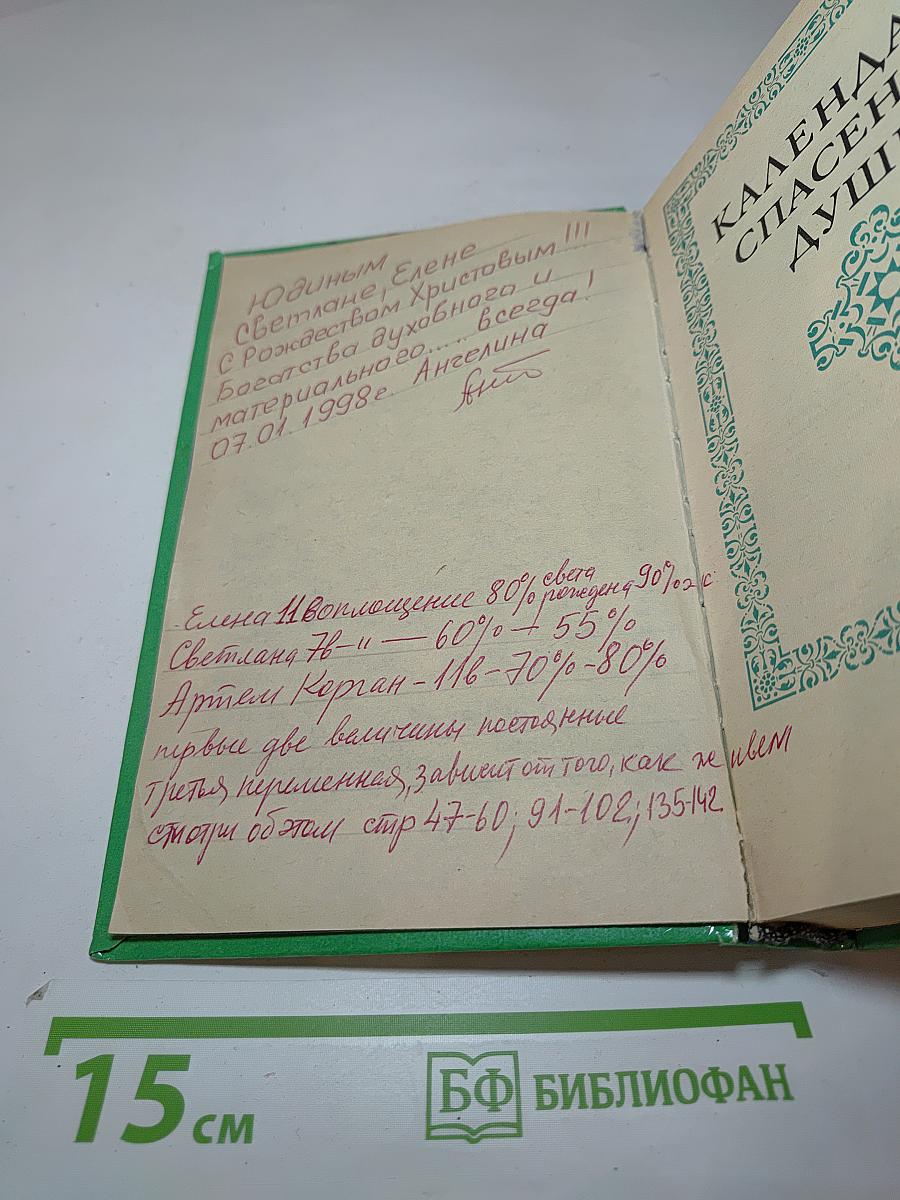 Юдиным
Светлане, Елене
с Рождеством Христовым!!!
Богатства духовного и
материального.... всегда!
07.01.1998г Ангелина
Елена 11 воплощение 80% света рождена 90% ж с
Светлана 7в -"- — 60% — 55%
Артем Корган - 11в - 70% - 80%
первые две величины постоянные
третья переменная, зависит от того, как живем
смотри об этом стр 47-60; 91-102; 135-142
КАЛЕНДА
СПАСЕН
ДУШ
15 см
БФ БИБЛИОФАН